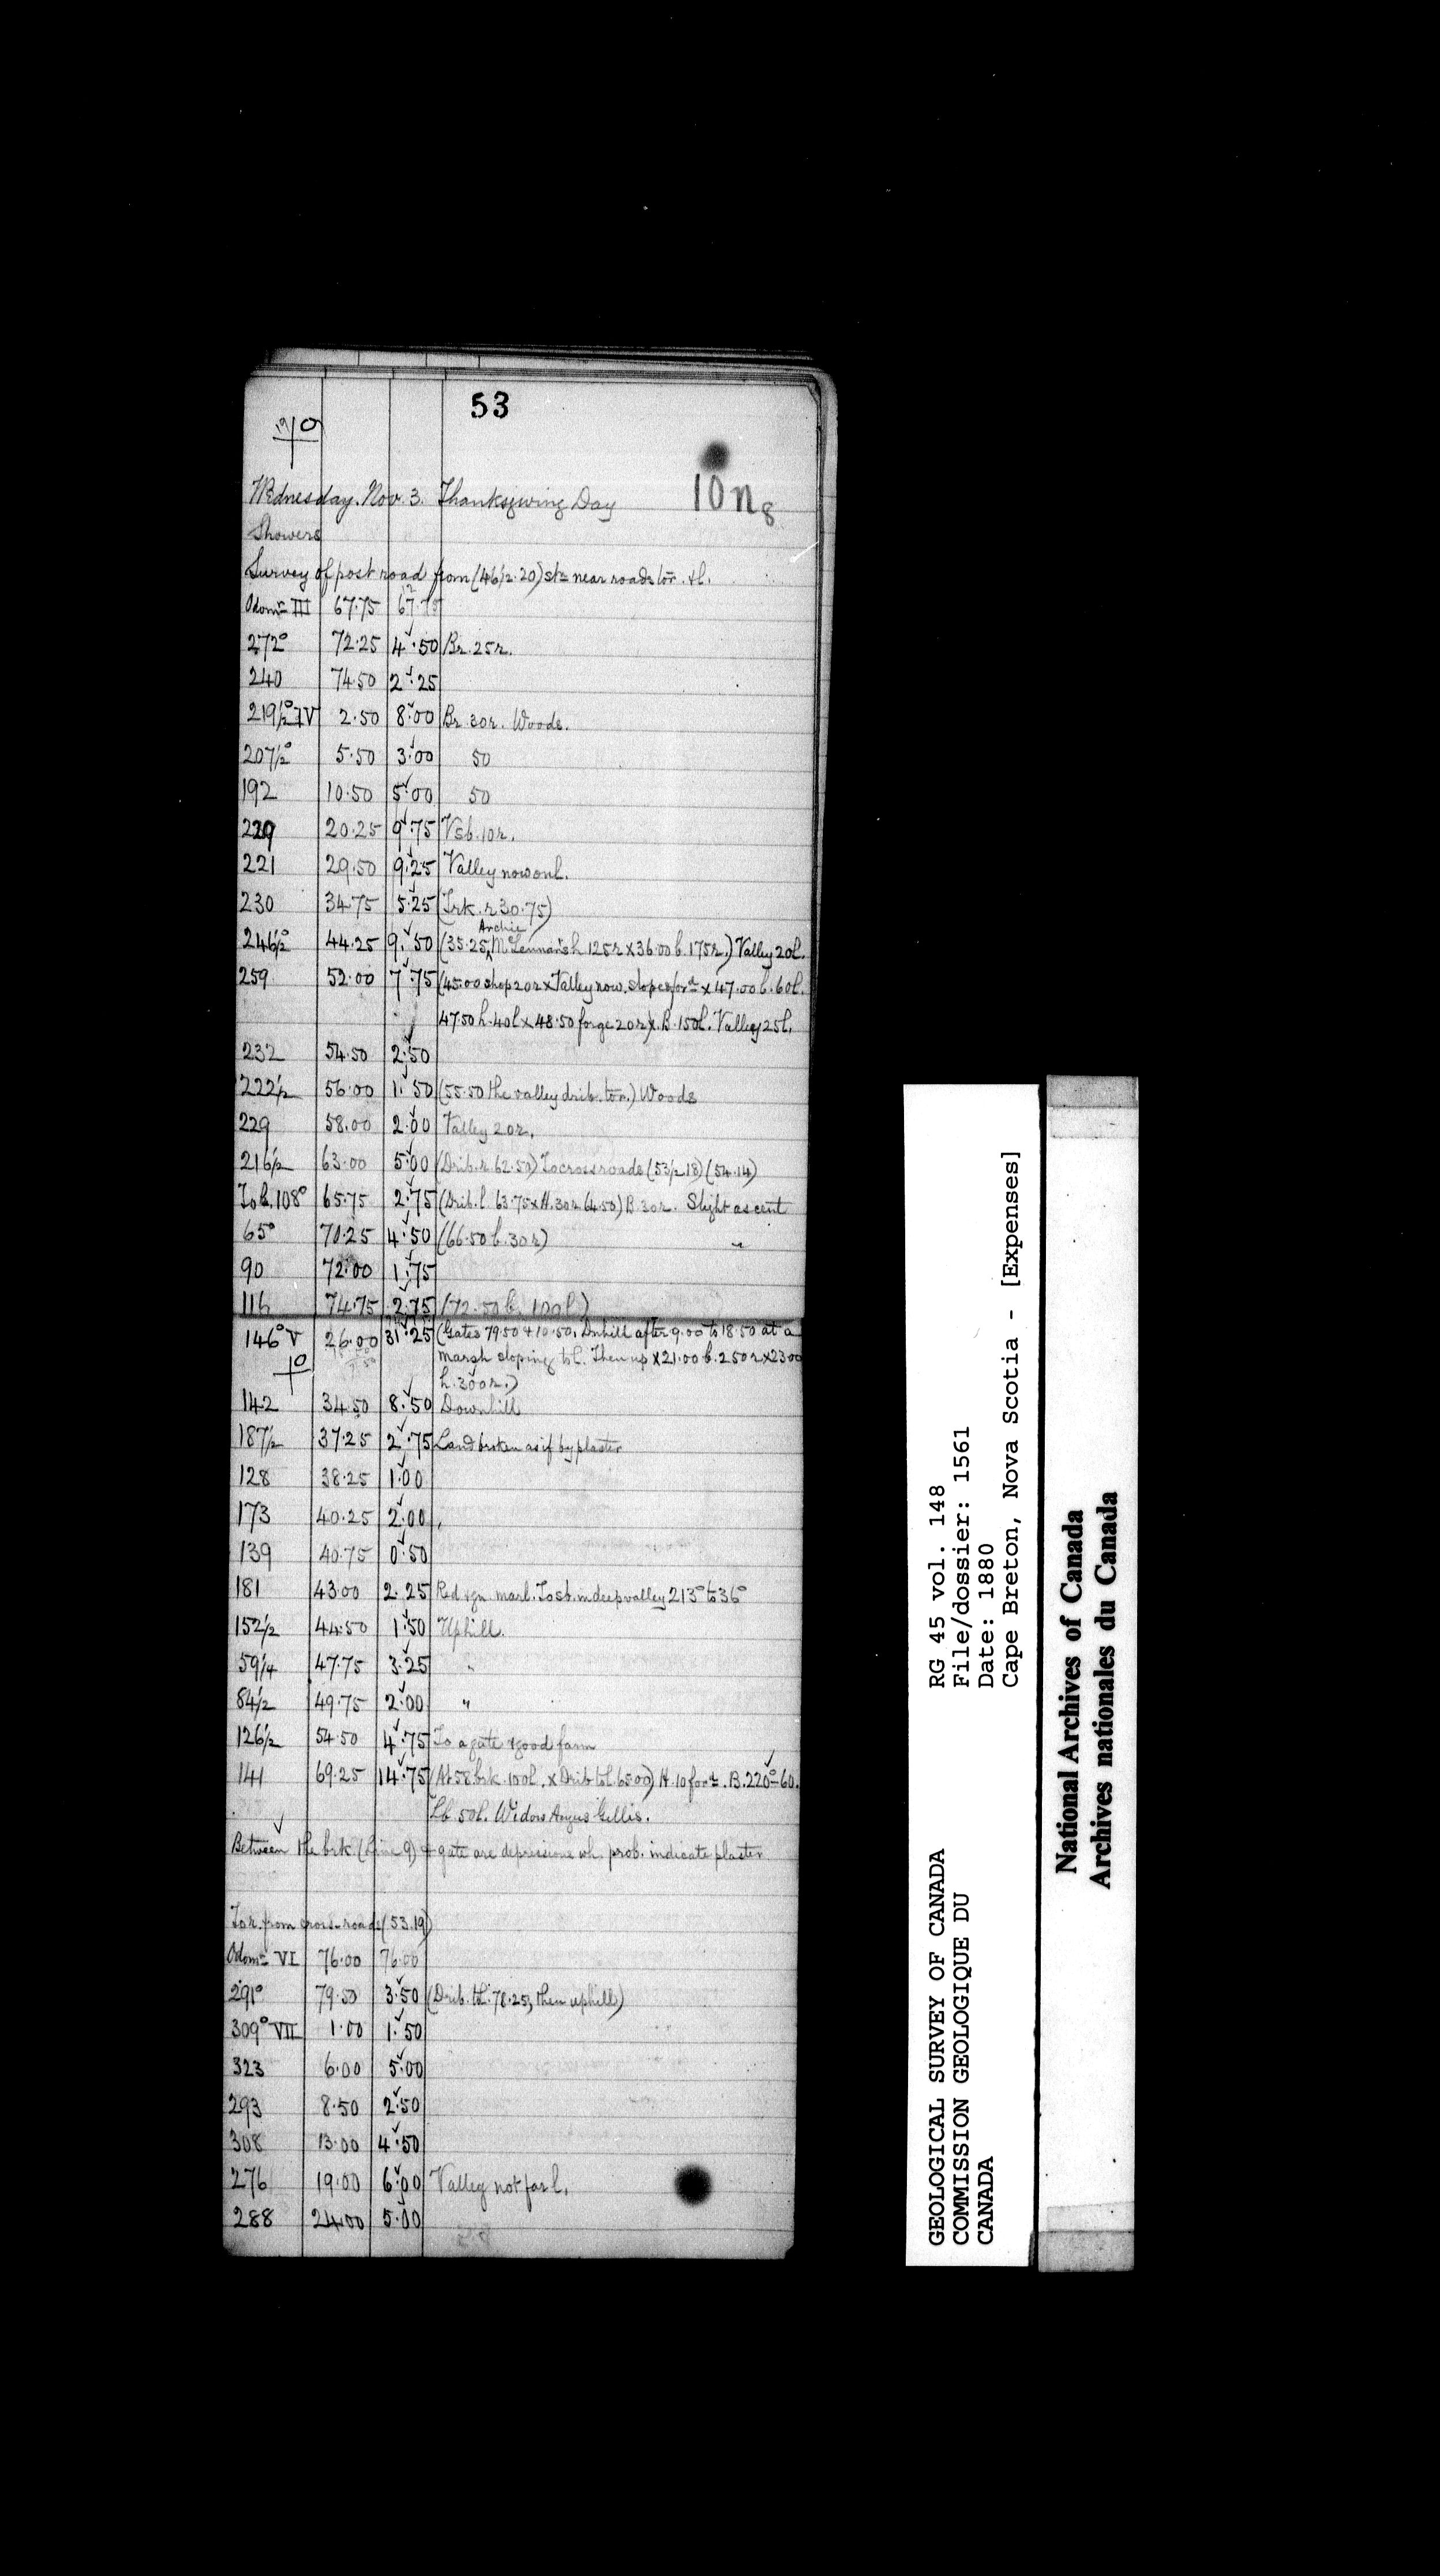 53
Wednesday. Nov. 3. Thanksgiving Day
10n8
Showers
Survey of post road from (46½.20) stn near roads to r. & l.
Odomr III 67.75 67.75
272° 72.25 4.50 Br. 25r.
240 74.50 2.25
219½° IV 2.50 8.00 Br 30r. Woods.
207½° 5.50 3.00 50
192 10.50 5.00 50
229 20.25 9.75 Vsb. 10r.
221 29.50 9.25 Valley now on l.
230 34.75 5.25 (Irk. r 30.75)
Archie
246½° 44.25 9.50 (35.25, McLennan's h 125r x 36.00 b. 175r.) Valley 20l.
259 52.00 7.75 (45.00 shop 20r x Valley now slopes ford x 47.00 b. 60l.
47.50 h. 40l x 48.50 forge 20r) x B. 150l. Valley 25l.
232 54.50 2.50
222½ 56.00 1.50 (55.50 the valley drib. to r.) Woods
229 58.00 2.00 Valley 20r.
216½ 63.00 5.00 (Drib. r. 62.50) To cross roads (53½.18) (54.14)
To l. 108° 65.75 2.75 (Drib. l 63.75 x H. 30r 64.50) B 30r. Slight ascent
65° 70.25 4.50 (66.50 b. 30r) "
90 72.00 1.75
116 74.75 2.75 (72.50 b. 100l)
146° V 26.00 31.25 (Gates 79.50 & 10.50. Dnhill after 9.00 to 18.50 at a
marsh sloping to l. Then up x 21.00 b. 250r x 23.00
h. 300r.)
142 34.50 8.50 Downhill
187½ 37.25 2.75 Land broken as if by plaster
128 38.25 1.00
173 40.25 2.00
139 40.75 0.50
181 43.00 2.25 Red & gn. marl. To sb. in deep valley 213° to 36°
152½ 44.50 1.50 Uphill.
59¼ 47.75 3.25 "
84½ 49.75 2.00 "
126½ 54.50 4.75 To a gate & good farm
141 69.25 14.75 (At 58 brk. 100l. x Drib to l. 65.00) H. 10 ford. B. 220°-60.
Lb 50l. Widow Angus Gillis.
Between the brk. (Line 9) & gate are depressions wh. prob. indicate plaster
To r. from cross-roads (53.19)
Odomr VI 76.00 76.00
291° 79.50 3.50 (Drib. to l. 78.25, then uphill)
309° VII 1.00 1.50
323 6.00 5.00
293 8.50 2.50
308 13.00 4.50
276 19.00 6.00 Valley not far l.
288 24.00 5.00
GEOLOGICAL SURVEY OF CANADA
COMMISSION GEOLOGIQUE DU
CANADA
RG 45 vol. 148
File/dossier: 1561
Date: 1880
Cape Breton, Nova Scotia - [Expenses]
National Archives of Canada
Archives nationales du Canada